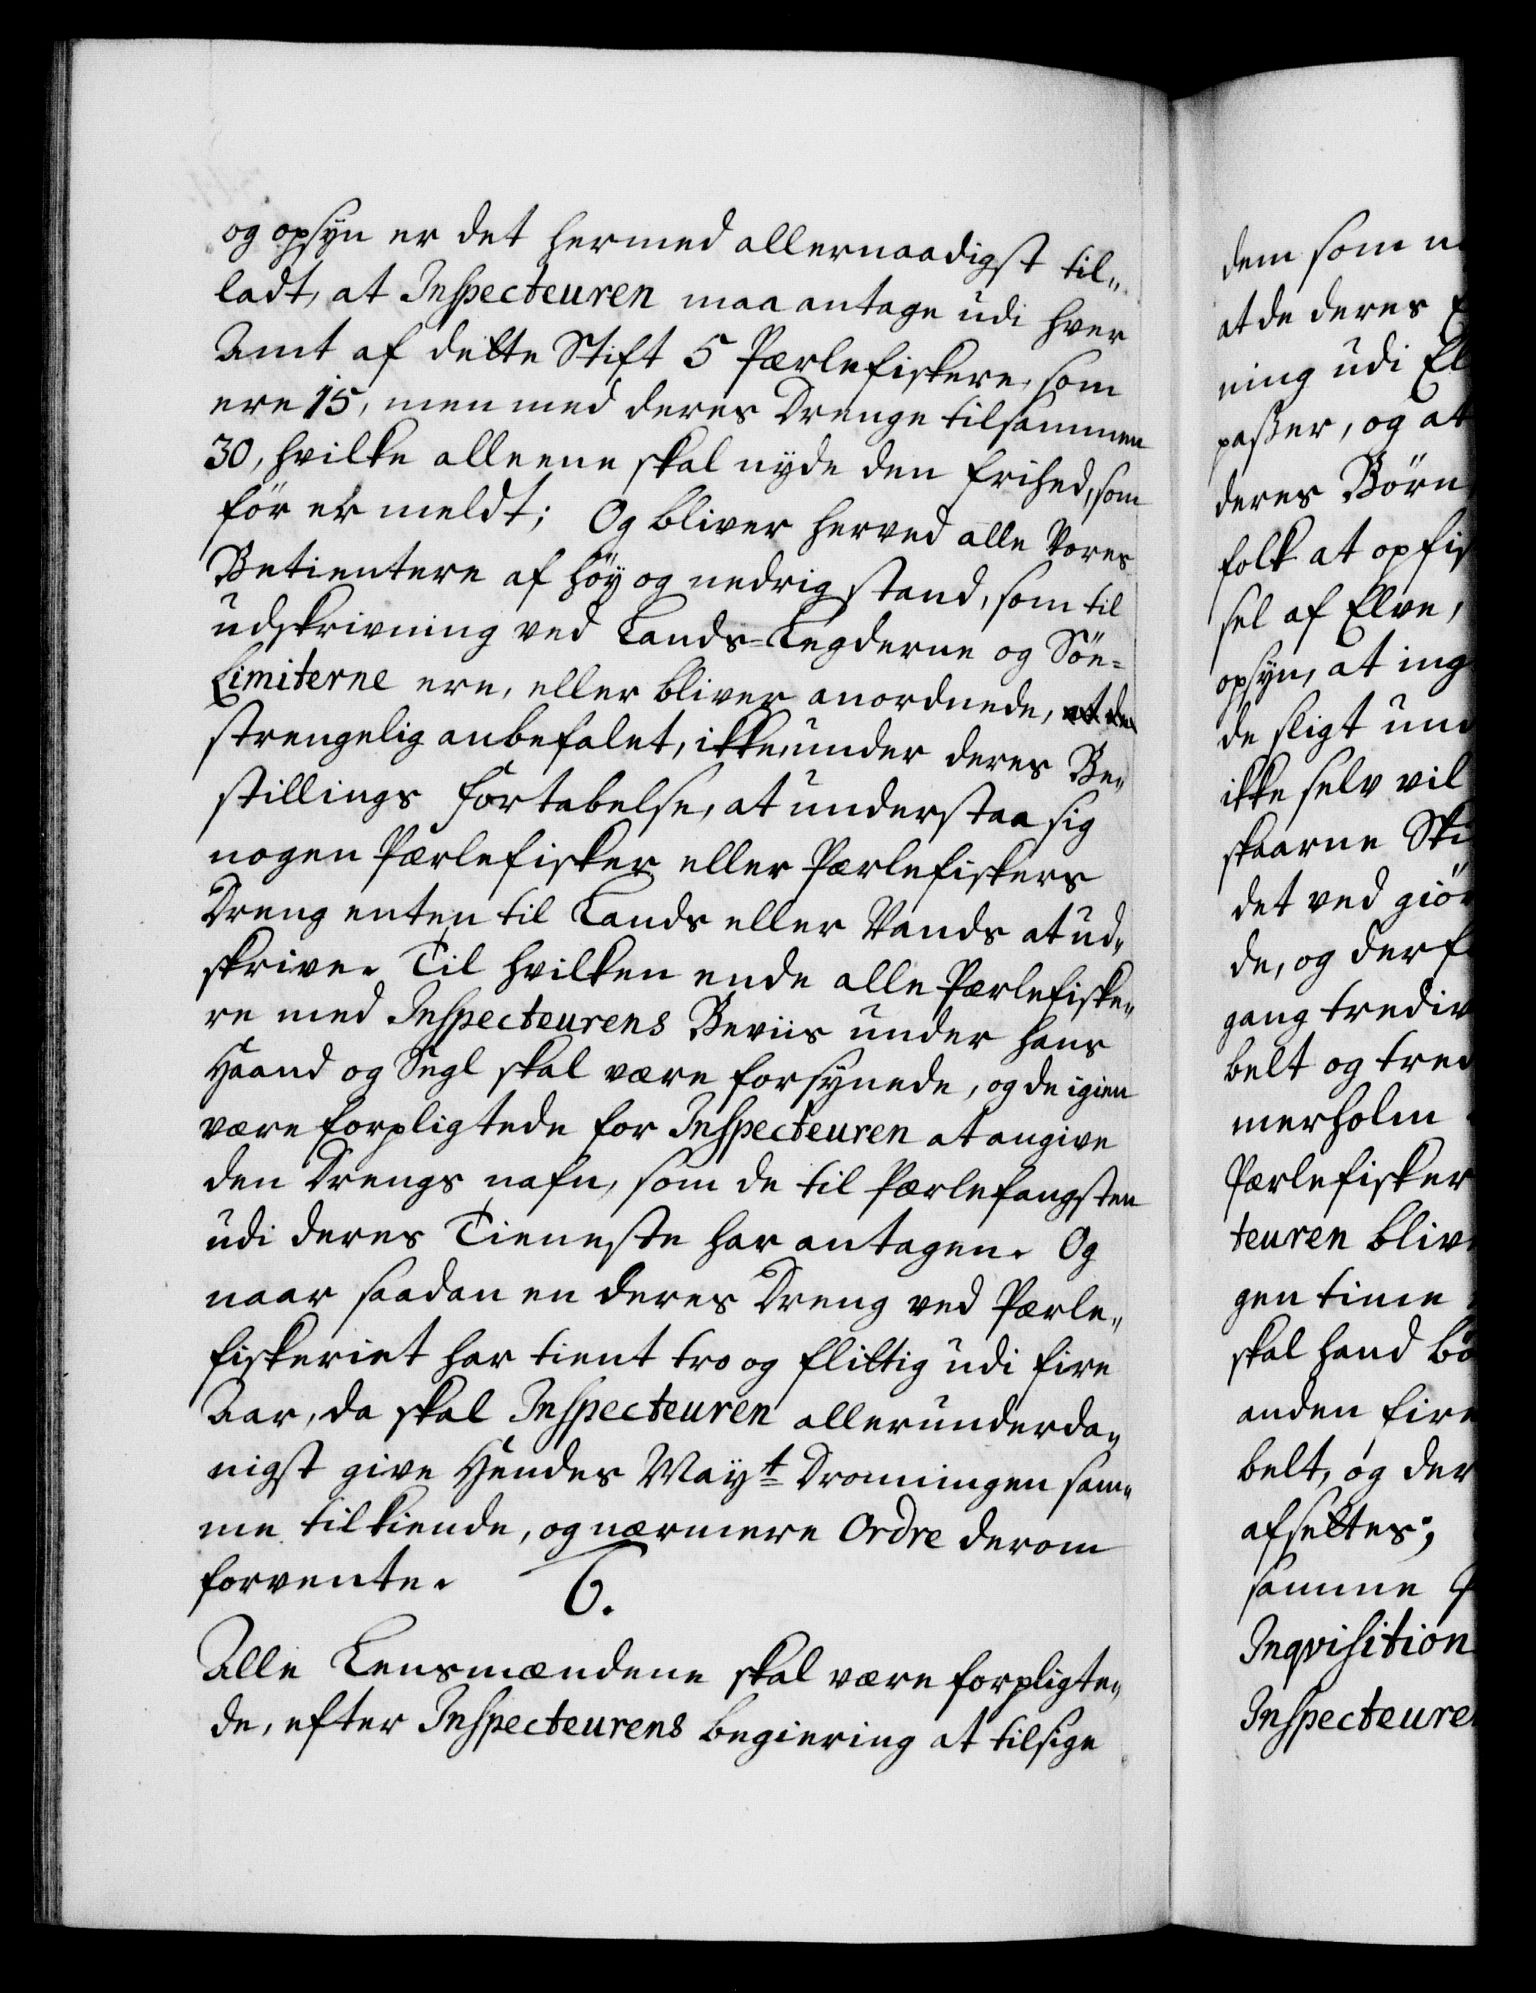 og opsyn er det hermed allernaadigst til„
ladt, at Inspecteuren maa antage udi hver
Amt af dette Stift 5 Pærlefiskere, som
ere 15, men med deres Drenge tilsammen
30, hvilke alleene skal nyde den frihed, som
før er meldt; Og bliver herved alle Vores
Betientere af høy og nedrig stand, som til
udskrivning ved Lands-Legderne og Söe-
Limiterne ere, eller bliver anordnede,
strengelig anbefalet, ikke, under deres Be„
stillings fortabelse, at understaa sig
nogen Pærlefisker eller Pærlefiskers
Dreng enten til Lands eller Vands at ud„
skrive. Til hvilken ende alle Pærlefiske„
re med Inspecteurens Beviis under hans
Haand og Segl skal være forsynede, og de igien
være forpligtede for Inspecteuren at angive
den Drengs nafn, som de til Pærlefangsten
udi deres Tieneste har antagen. Og
naar saadan en deres Dreng ved Pærle„
fiskeriet har tient tro og flittig udi fire
Aar, da skal Inspecteuren allerunderda„
nigst give Hendes May:t Dronningen sam„
me tilkiende, og nærmere Ordre derom
forvente.
6.
Alle Lensmændene skal være forpligte„
de, efter Inspecteurens begiering at tilsige
dem som
at de deres
ning udi El
passer, og at
deres Börn
folk at opfis
sel af Elve,
opsyn, at ing
de sligt un
ikke selv vil
skaarne Ski
det ved giör
de, og derf
gang trediv
belt og tred
merholm
Pærlefisker
teuren blive
gen time
skal hand bö
anden fire
belt, og der
afsettes;
samme
Inqvisition
Inspecteure